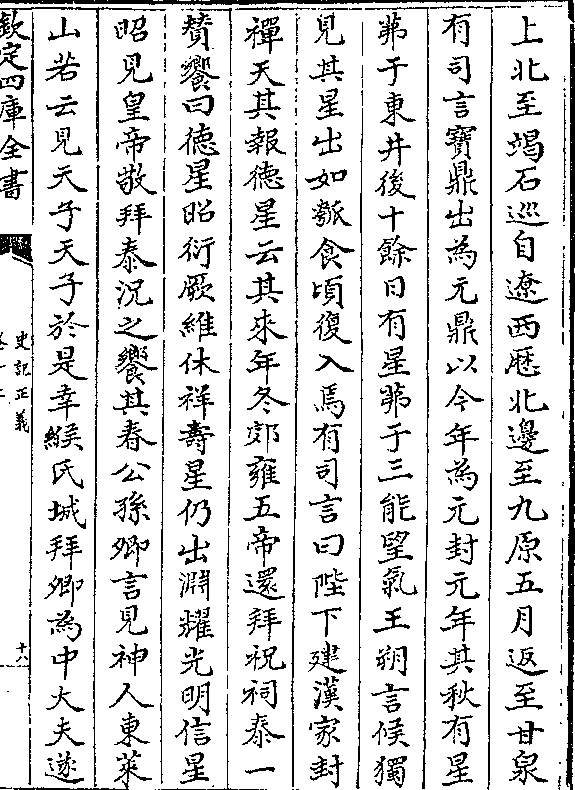 上北至碣石巡自遼西歷北邊至九原五月返至甘泉
有司言寶鼎出為元鼎以今年為元封元年其秋有星
茀于東井後十餘日有星茀于三能望氣王朔言候獨
見其星出如瓠食頃復入焉有司言曰陛下建漢家封
禪天其報德星云其來年冬郊雍五帝還拜祝祠泰一
贊饗曰德星昭衍厥維休祥壽星仍出淵耀光明信星
昭見皇帝敬拜泰況之饗其春公孫卿言見神人東萊
山若云見天子天子於是幸緱氏城拜卿為中大夫遂
欽定四庫全書
史記正義
卷十二
十八